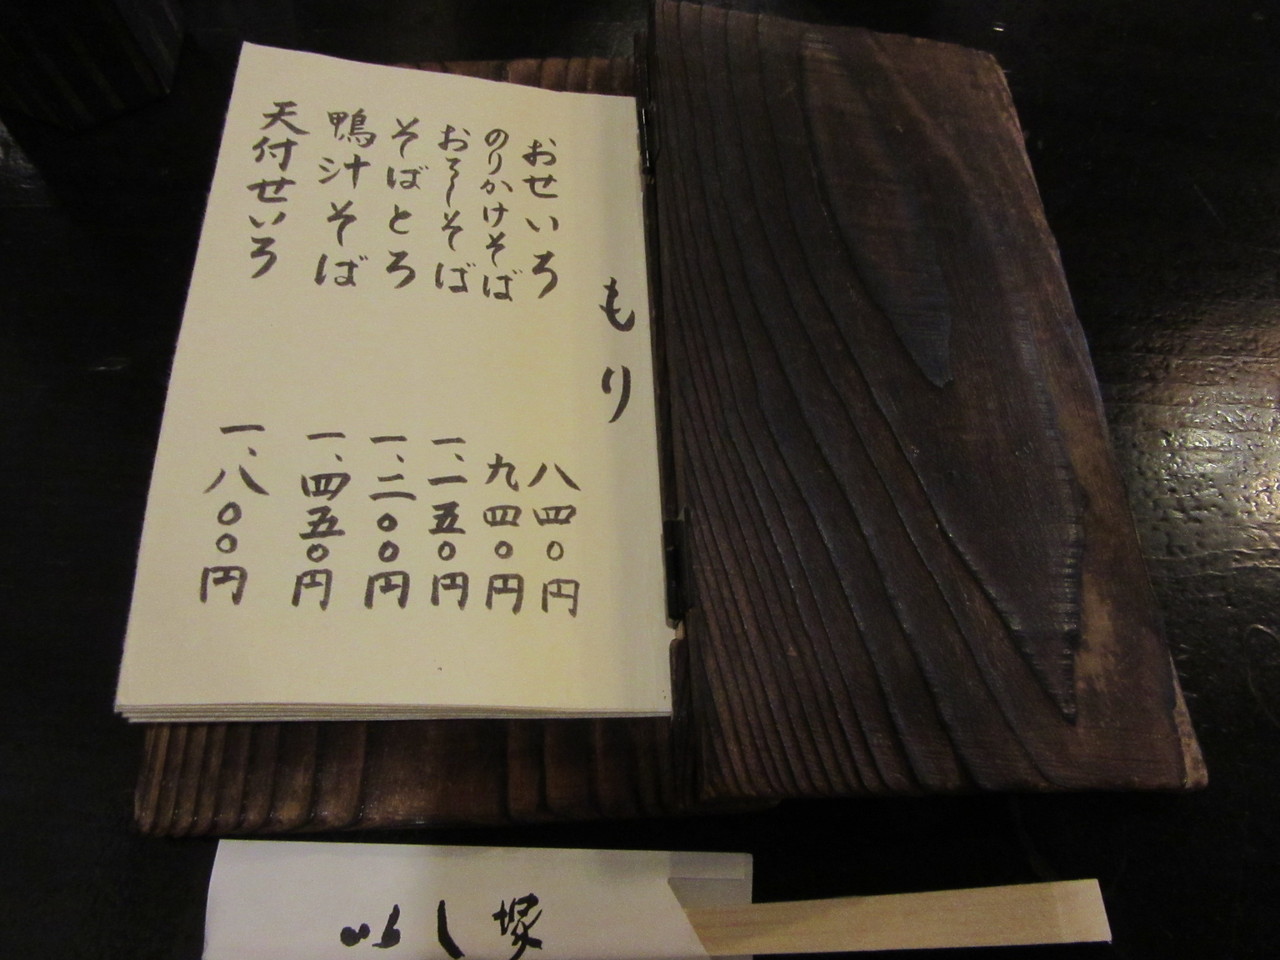 もり
おせいろ 八四〇円
のりかけそば 九四〇円
おろしそば 一、一五〇円
そばとろ 一、二〇〇円
鴨汁そば 一、四五〇円
天付せいろ 一、八〇〇円
いし塚